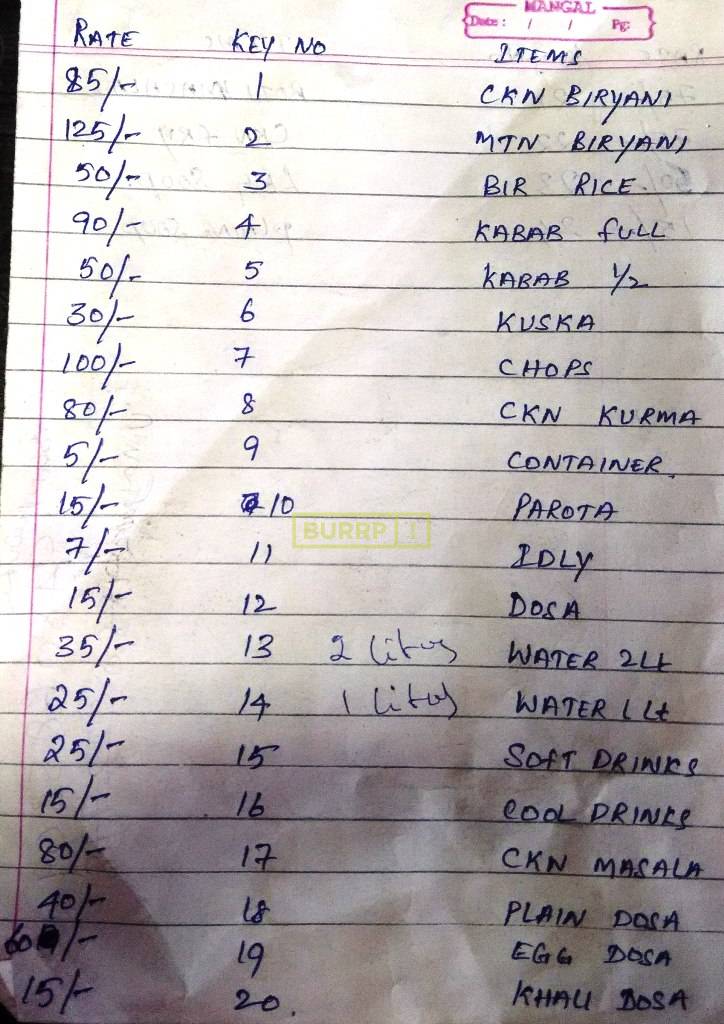 MANGAL
Date: / / Pg:
RATE KEY NO ITEMS
85/- 1 CKN BIRYANI
125/- 2 MTN BIRYANI
50/- 3 BIR RICE.
90/- 4 KABAB FULL
50/- 5 KABAB 1/2
30/- 6 KUSKA
100/- 7 CHOPS
80/- 8 CKN KURMA
5/- 9 CONTAINER.
15/- 10 PAROTA
BURRP!
7/- 11 IDLY
15/- 12 DOSA
35/- 13 2 WATER 2Lt
25/- 14 1 WATER 1 Lt
25/- 15 SOFT DRINKS
15/- 16 COOL DRINKS
80/- 17 CKN MASALA
40/- 18 PLAIN DOSA
60/- 19 EGG DOSA
15/- 20. KHALI DOSA